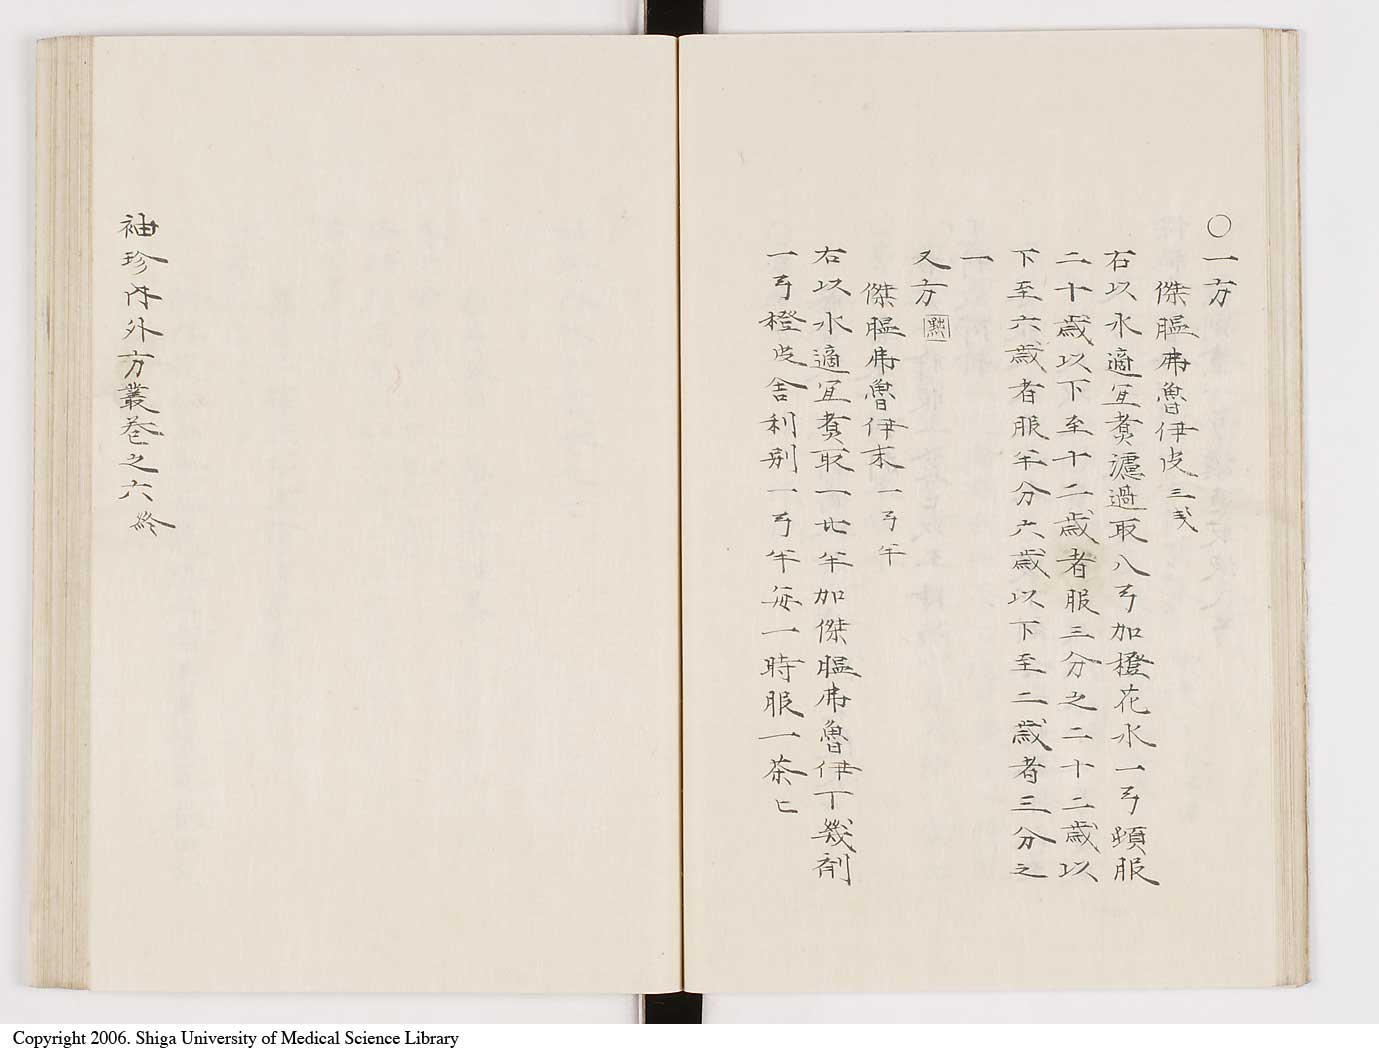 〇一方
傑膃弗魯伊皮三戔
右以水適宜煮濾過取八弓加橙花水一弓頓服
二十歳以下至十二歳者服三分之二十二歳以
下至六歳者服半分六歳以下至二歳者三分之
一
又方
傑膃弗魯伊末一弓半
右以水適宜煮取一比半加傑膃弗魯伊丁幾剤
一弓橙皮舎利別一弓半毎一時服一茶匕
袖珍内外方叢巻之六終
Copyright 2006. Shiga University of Medical Science Library